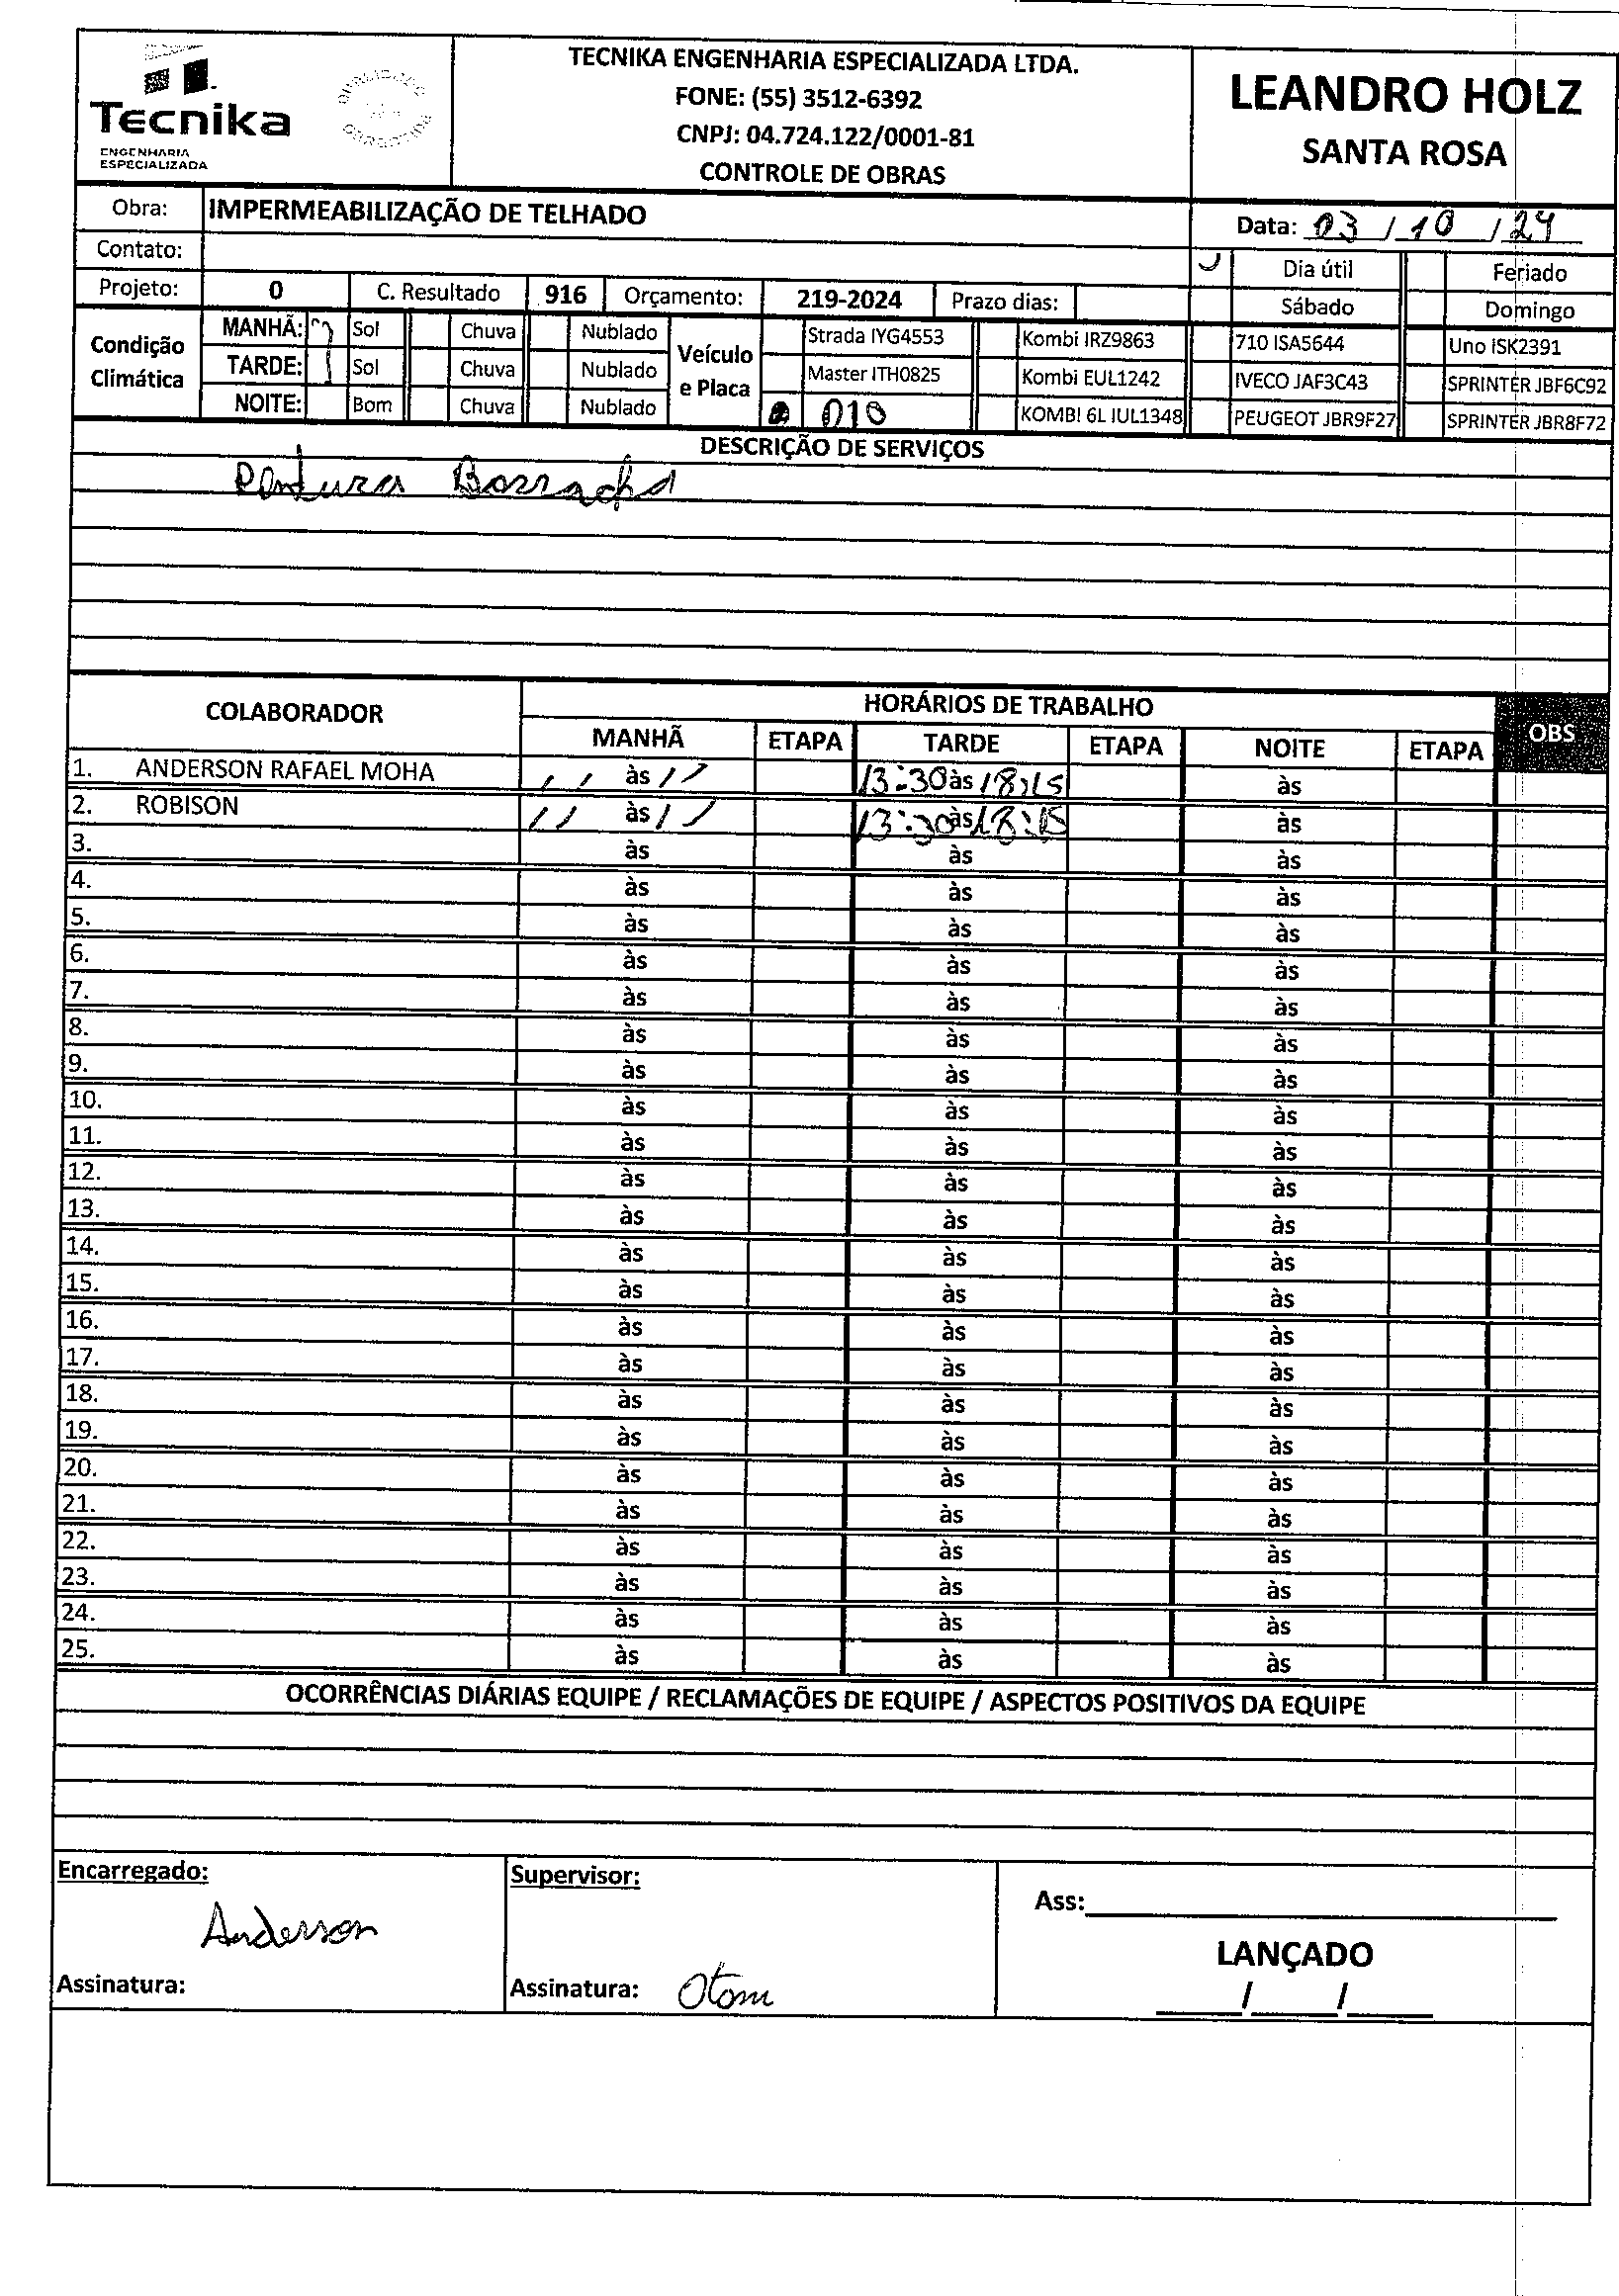 Tecnika
ENGENHARIA
ESPECIALIZADA
TECNIKA ENGENHARIA ESPECIALIZADA LTDA.
FONE: (55) 3512-6392
CNPJ: 04.724.122/0001-81
CONTROLE DE OBRAS
LEANDRO HOLZ
SANTA ROSA
Obra: IMPERMEABILIZAÇÃO DE TELHADO
Data: 03 / 10 / 24
Contato:
Dia útil Feriado
Projeto: 0 C. Resultado 916 Orçamento: 219-2024 Prazo dias:
Sábado Domingo
Condição Climática
MANHÃ: Sol Chuva Nublado
TARDE: Sol Chuva Nublado
NOITE: Bom Chuva Nublado
Veículo e Placa
Strada IYG4553 Kombi IRZ9863 710 ISA5644 Uno ISK2391
Master ITH0825 Kombi EUL1242 IVECO JAF3C43 SPRINTER JBF6C92
010 KOMBI 6L IUL1348 PEUGEOT JBR9F27 SPRINTER JBR8F72
DESCRIÇÃO DE SERVIÇOS
Pintura Borracha
COLABORADOR HORÁRIOS DE TRABALHO OBS
MANHÃ ETAPA TARDE ETAPA NOITE ETAPA
1. ANDERSON RAFAEL MOHA // às // 13:30 às 18:15 às
2. ROBISON // às // 13:30 às 18:15 às
3. às às às
4. às às às
5. às às às
6. às às às
7. às às às
8. às às às
9. às às às
10. às às às
11. às às às
12. às às às
13. às às às
14. às às às
15. às às às
16. às às às
17. às às às
18. às às às
19. às às às
20. às às às
21. às às às
22. às às às
23. às às às
24. às às às
25. às às às
OCORRÊNCIAS DIÁRIAS EQUIPE / RECLAMAÇÕES DE EQUIPE / ASPECTOS POSITIVOS DA EQUIPE
Encarregado:
Anderson
Assinatura:
Supervisor:
Assinatura: Otom
Ass:
LANÇADO
/ /